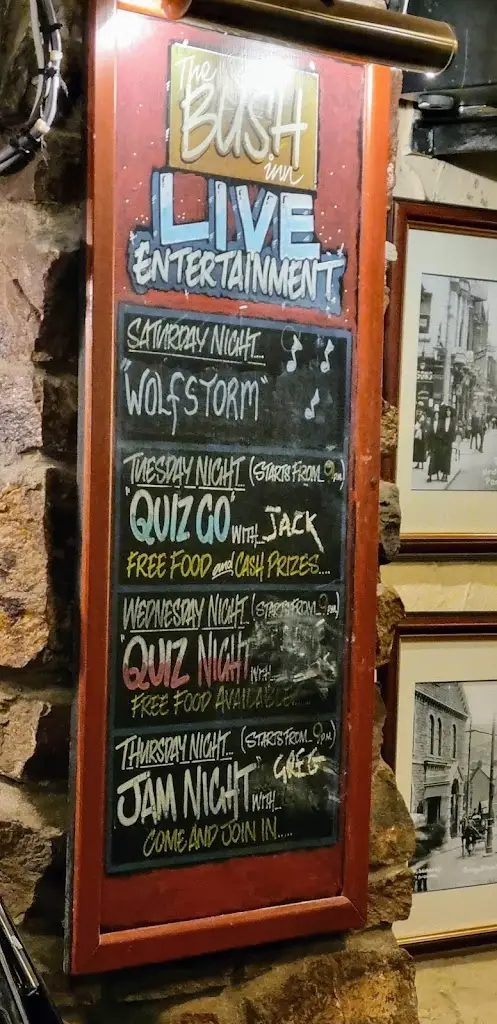 The
BUSH
inn
LIVE
ENTERTAINMENT
SATURDAY NIGHT...
"WOLFSTORM"
TUESDAY NIGHT... (STARTS FROM.. 9PM)
"QUIZ GO" WITH.. JACK
FREE FOOD and CASH PRIZES....
WEDNESDAY NIGHT.. (STARTS FROM.. 9PM)
"QUIZ NIGHT WITH...
FREE FOOD AVAILABLE.....
THURSDAY NIGHT... (STARTS FROM.. 9PM)
JAM NIGHT" WITH.. GREG
COME AND JOIN IN.....